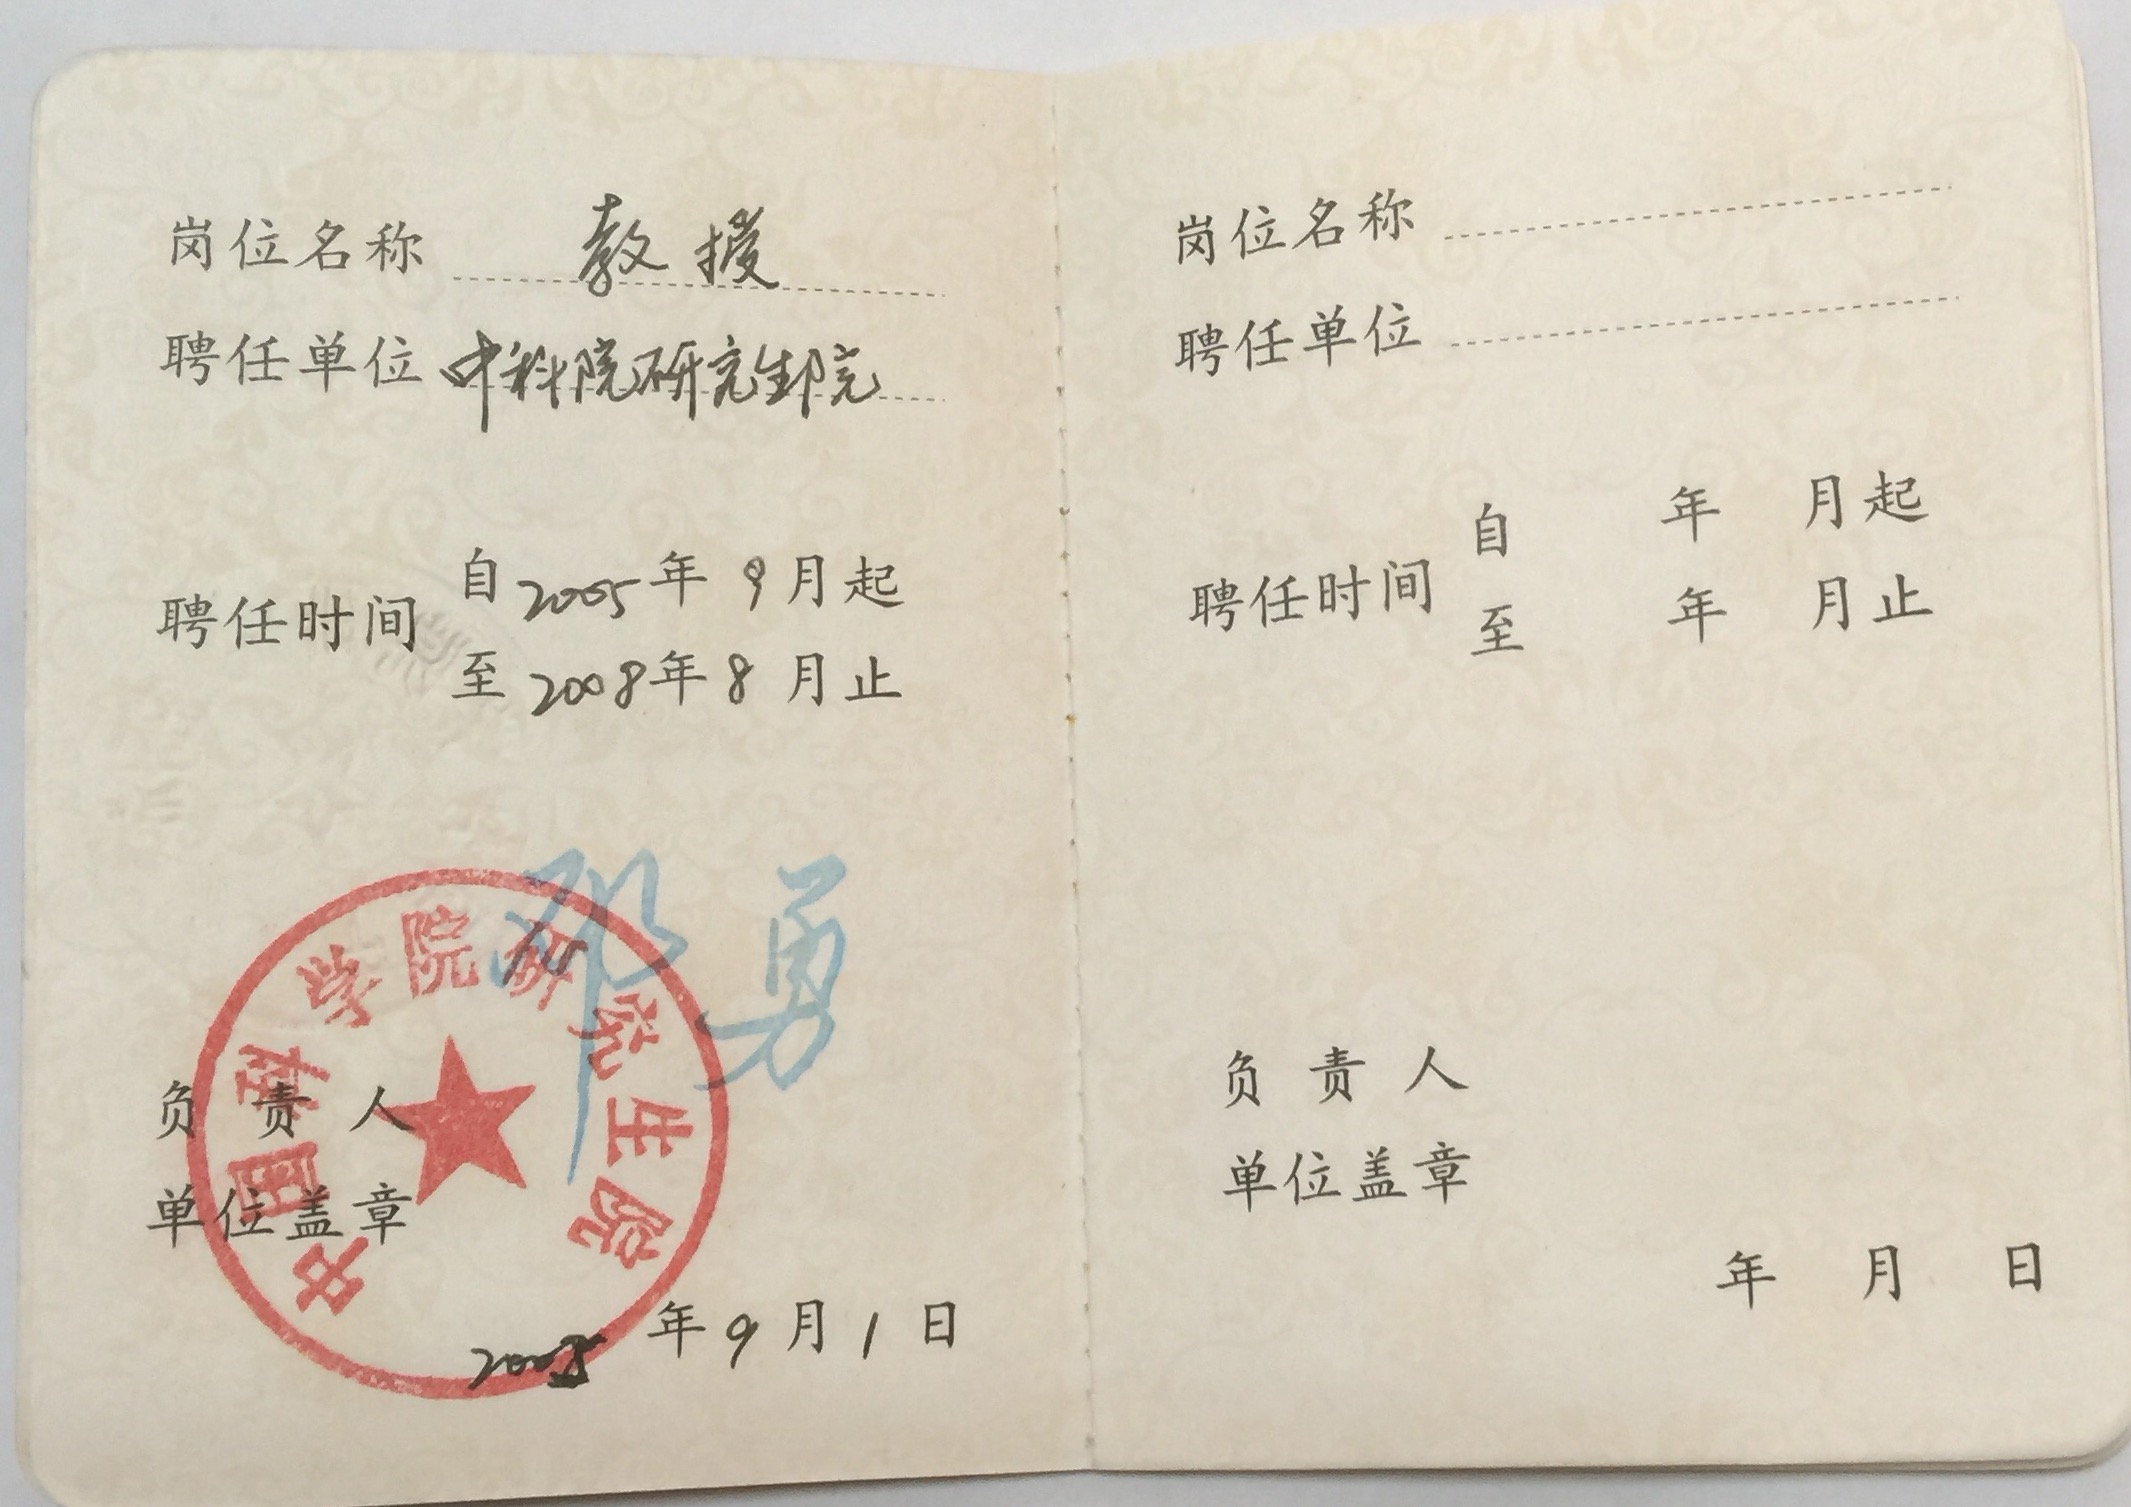 岗位名称 教授
聘任单位 中科院研究生院
聘任时间
自2005年9月起
至2008年8月止
中国科学院研究生院
邓勇
负责人
单位盖章
2005年9月1日
岗位名称
聘任单位
聘任时间
自 年 月起
至 年 月止
负责人
单位盖章
年 月 日